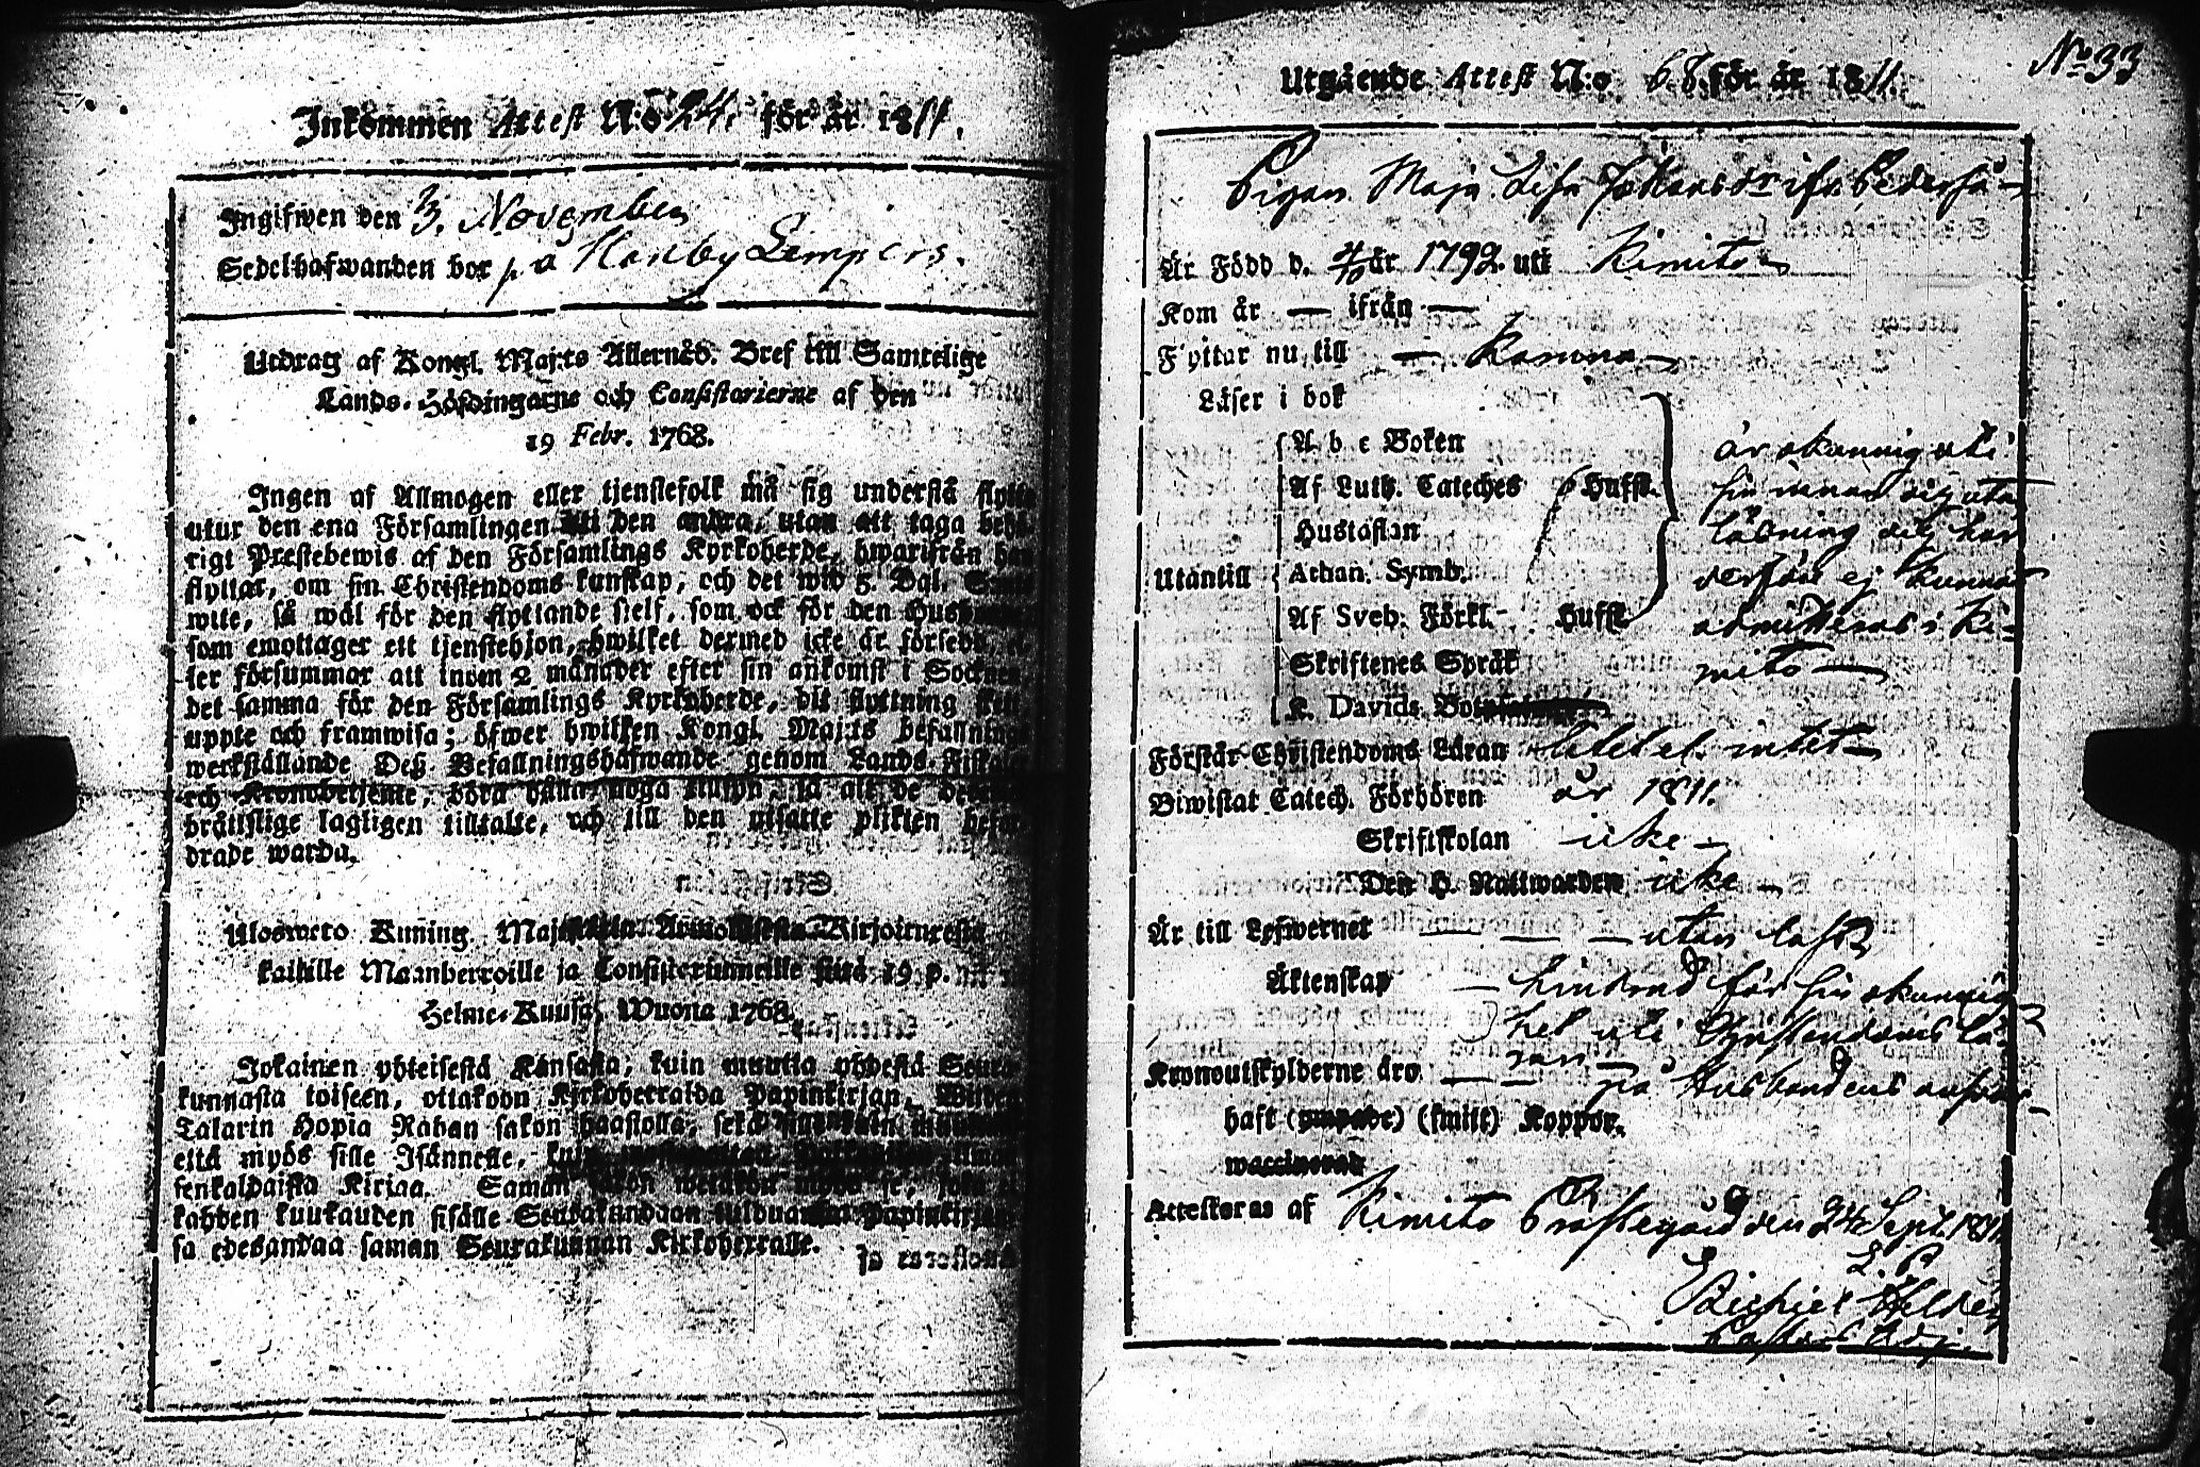 Inkommen Attest N:o 24. för år 1811.
Ingifwen den 3. November
Sedelhafwanden bor på
Utdrag af Kongl. Maj:ts Allernåd. Bref till Samtelige
Lands-Höfdingarne och Consistorierne af den
19 Febr. 1768.
Ingen af Allmogen eller tjenstefolk må sig understå flytta
utur den ena Församlingen till den andra, utan att taga behö-
rigt Prestebewis af den Församlings Kyrkoherde, hwarifrån han
flyttar, om sin Christendoms kunskap, och det wid 5. Dal.
wite, så wäl för den flyttande sjelf, som ock för den
som emottager ett tjenstehjon, hwilket dermed icke är försedt, el-
ler försummar att inom 2 månader efter sin ankomst i Socknen
det samma för den Församlings Kyrkoherde, dit flyttning sker
uppte och framwisa; öfwer hwilken Kongl. Maj:ts befallning
werkställande Deß Befallningshafwande genom Lands-Fiskaler
och Kronobetjente, böra hålla noga tillsyn, så att de
bråttslige lagligen tilltalte, och till den utsatte plikten befor-
drade warda.
Ulosweto Kuning. Majestetin Armollisesta Kirjoituxesta
kaikille Maanherroille ja Consistoriumeille siitä 19 p.
Helme-Kuusa, Wuona 1768.
Jokainen yhteisestä Kansasta, kuin muutta yhdestä Seura-
kunnasta toiseen, ottakohn Kirkoherralda Papinkirjan,
Talarin Hopia Rahan sakon haastolla, sekä
että myös sille Isännelle,
senkaldaista Kirjaa. Saman
kahden kuukauden sisälle Seurakundaan tulduansa Papinkirjan-
sa edesandaa saman Seurakunnan Kirkoherralle.
No 33
Utgående Attest N:o 68. för år 1811.
Pigan Maja Lisa Johansdr ifr.
Är Född d. år 1792. uti Kimito
Kom år — ifrån —
Flyttar nu till —
Läser i bok
A b c Boken
Af Luth. Cateches 6 Hufst.
Hustaflan
Utantill Athan. Symb.
Af Sveb. Förkl. - Hufst.
Skriftenes Språk
K. Davids Bot
är okunnig uti
innan och utan
läsning och har
derföre ej kunnat
admitteras i Ki-
mito —
Förstår Christendoms Läran litet el. intet —
Biwistat Catech. Förhören år 1811.
Skriftskolan icke —
Den H. Nattwarden icke —
Är till Lefwernet — — — utan last
Äktenskap — hindrad för sin okunnig-
het uti Christendoms Lä-
ran —
Kronoutskylderne äro — — på Husbondens answar
haft (smpade) (smitt) Koppor.
waccinerad
Attesteras af Kimito Prästegård den 24 Sept. 1811